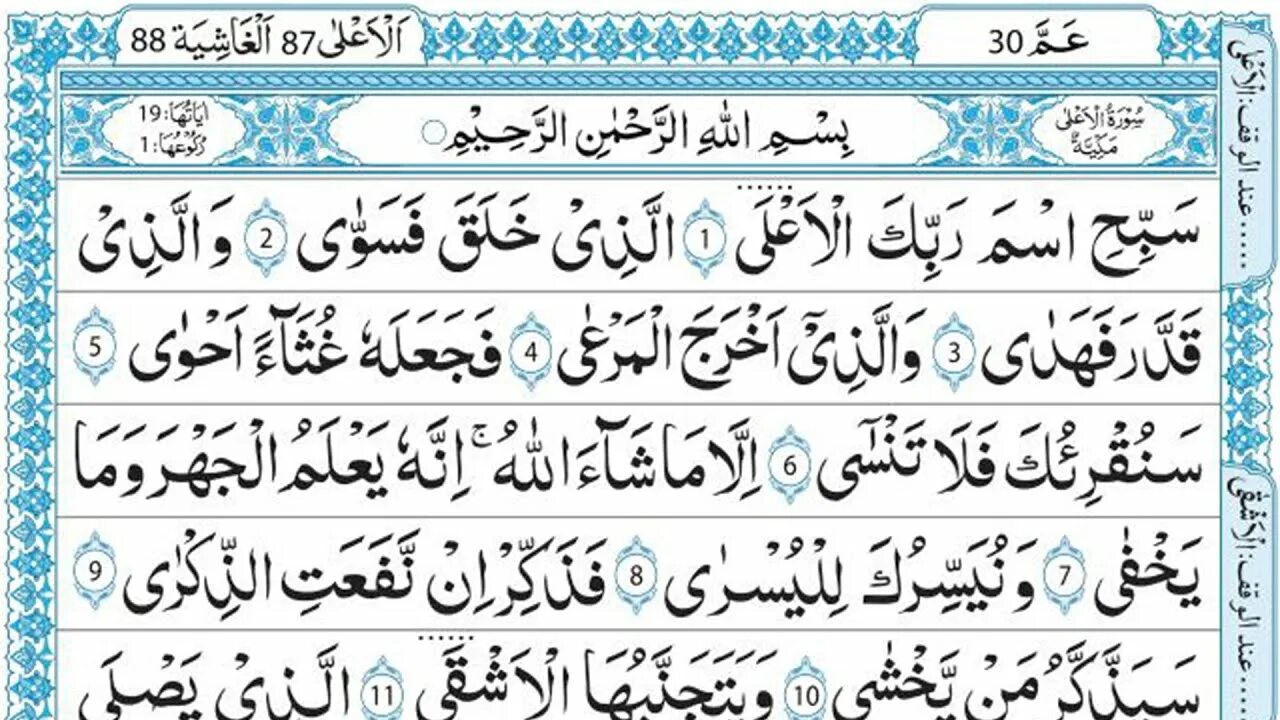 عَمَّ 30
اَلْاَعْلٰى 87 اَلْغَاشِيَة 88
سُوْرَةُ الْاَعْلٰى
مَكِّيَّةٌ
بِسْمِ اللهِ الرَّحْمٰنِ الرَّحِيْمِ
اٰيَاتُهَا: 19
رُكُوْعُهَا: 1
سَبِّحِ اسْمَ رَبِّكَ الْاَعْلَى 1 الَّذِيْ خَلَقَ فَسَوّٰى 2 وَالَّذِيْ
قَدَّرَ فَهَدٰى 3 وَالَّذِيْٓ اَخْرَجَ الْمَرْعٰى 4 فَجَعَلَهٗ غُثَآءً اَحْوٰى 5
سَنُقْرِئُكَ فَلَا تَنْسٰٓى 6 اِلَّا مَا شَآءَ اللّٰهُ ۚ اِنَّهٗ يَعْلَمُ الْجَهْرَ وَمَا
يَخْفٰى 7 وَنُيَسِّرُكَ لِلْيُسْرٰى 8 فَذَكِّرْ اِنْ نَّفَعَتِ الذِّكْرٰى 9
سَيَذَّكَّرُ مَنْ يَّخْشٰى 10 وَيَتَجَنَّبُهَا الْاَشْقَى 11 الَّذِيْ يَصْلَى
..... عند الوقف: الْاَعْلٰى
..... عند الوقف: الْاَشْقٰى